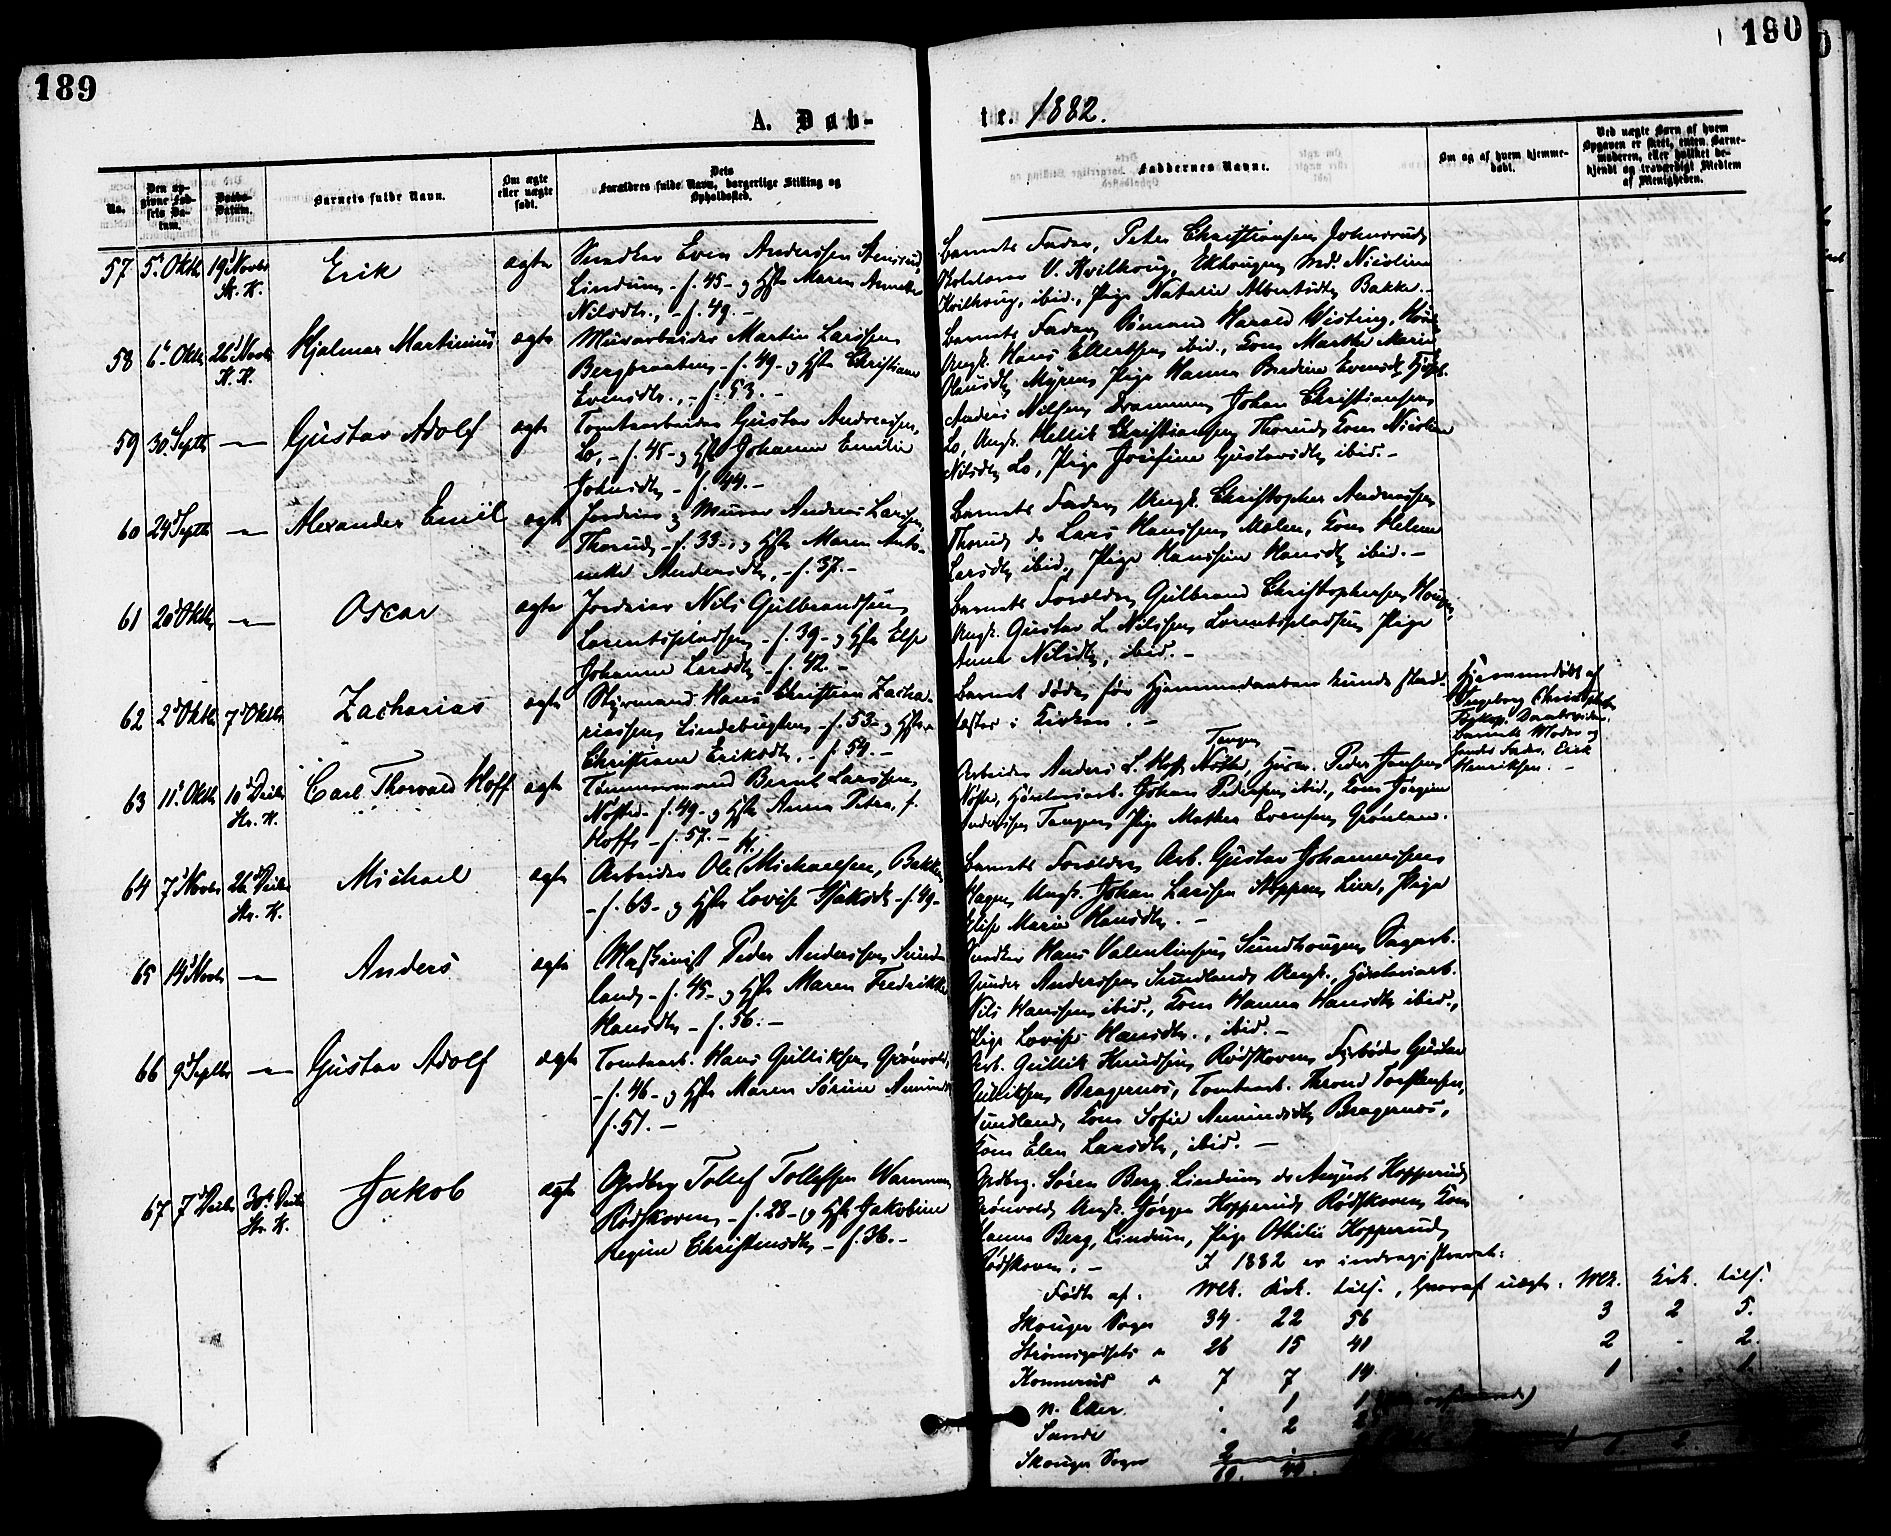 189
190
A. Døb-
te. 1882.
No.
Den op-
givne Fød-
sels Da-
tum.
Daabs-
Datum.
Barnets fulde Navn.
Om ægte
eller uægte
født.
Dets
Forældres fulde Navn, borgerlige Stilling og
Opholdssted.
Faddernes Navne.
Om og af hvem hjemme-
døbt.
Ved uægte Børn af hvem
Opgaven er skeet, enten Barne-
moderen, eller hvilket be-
kjendt og troværdigt Medlem
af Menigheden.
57 5' Oktb. 19' Novbr. Erik ægte Snedker Even Anderssen
St. K.
Lindum, - f. 45 - og Hstr Maren Annette
Nilsdtr., - f. 49. -
Barnets Fader, Peter Christiansen Johnsrud,
Kvilhoug, ibid., Pige Natalie Albertsdtr. Bakke. -
58 6' Oktb. 26' Novb. Hjalmar Martinius ægte Murarbeider Martin Larssen
K. K.
Bergbraaten, - f. 49 - og Hstr Christiane
Evensdtr., - f. 53. -
Barnets Fader, Sømand Harald Wisting,
Ungk. Hans Ellertsen, ibid., Kone Marthe Marie
Olausdtr. Myren, Pige Hanna Bredine Evensdtr.
59 30' Septb. -„- Gustav Adolf ægte Tomtearbeider Gustav Andreassen,
Lo, - f. 45 - og Hstr Johanne Emilie
Johnsdtr. - f. 44. -
Anders Nilsen, Drammen, Johan Christiansen
Lo, Ungk. Hellik Christiansen, Thorud, Kone Nicoline
Nilsdtr. Lo, Pige Josefine Gustavsdtr. ibid. -
60 24' Septb. -„- Alexander Emil ægte Jordeier og Murer Andreas Larssen,
Thorud, - f. 33 -, og Hstr Maren Anto-
nette Andersdtr., - f. 37. -
Barnets Fader, Ungk. Christopher Andreassen
Thorud, do Lars Hanssen, Moten, Kone Helene
Larsdtr. ibid., Pige Hanssine Hansdtr. ibid. -
61 20' Oktb. -„- Oscar ægte Jordeier Nils Gulbrandsen,
Lorentspladsen, - f. 39 - og Hstr Else
Johanne Larsdtr. - f. 42. -
Barnets Forældre, Gulbrand Christophersen Hougen,
Ungk. Gustav L. Nilssen, Lorentspladsen, Pige
Anna Nilsdtr., ibid. -
62 2' Oktb. 7' Oktb. Zacharias ægte Styrmand Hans Christian Zacha-
riassen, Lindebugten, - f. 53 - og Hstr
Christiane Eriksdtr., - f. 54. -
Barnet døde, før Hjemmedaaben kunde stad-
fæstes i Kirken. -
Hjemmedøbt af
Ingeborg Christophsdtr.
Barnets Moder og
hendes Fader, Erik
Henriksen. -
63 11' Oktb. 10' Decbr. Carl Thorvald Hoff ægte Tømmermand Bernt Larssen,
St. K.
Nøsted - f. 49 - og Hstr Anna Petra, f.
Hoff, - f. 57. -
Tangen
Arbeider Anders L. Hoff, Nøste, Husm. Peder Jansen,
Nøste, Høvleriarb. Johan Pedersen, ibid., Kone Jørgine
Anderssen, Tangen, Pige Mathea Evensen, Grønland.
64 7' Novbr. 26' Decbr. Michael ægte Arbeider Ole K. Michaelsen, Bakken
St. K.
- f. 63 - og Hstr Lovise Isaksdtr. - f. 49 -
Barnets Forældre, Arb. Gustav Johannessen,
Hagen, Ungk. Johan Larssen Stoppen, Lier, Pige
Elise Marie Hansdtr. -
65 14' Novbr. -„- Anders ægte Maskinist Peder Anderssen, Sund-
land, - f. 45 - og Hstr Maren Fredrikke
Hansdtr. - f. 56. -
Snedker Hans Valentinsen, Sundhougen, Sagarb.
Gunder Anderssen, Sundland, Ungk., Høvleriarb.
Nils Hanssen, ibid., Kone Hanna Hansdtr. ibid.,
Pige Lovise Hansdtr., ibid. -
66 9' Septbr. -„- Gustav Adolf ægte Tomtearb. Hans Gulliksen, Grønvold,
- f. 46 - og Hstr Maren Sørine Amunds
f. 51. -
Arb. Gullik Knudsen, Rødskoven, Fyrbøder Gustav
Gulliksen, Bragernes, Tomtearb. Thrond Torstensen,
Sundland, Kone Sofie Amundsdtr. Bragernes,
Kone Elen Larsdtr., ibid. -
67 7' Decbr. 30' Decbr. Jakob ægte Grdbrg. Tollef Tollefsen Wammen,
St. K.
Rødskoven, - f. 28 - og Hstr Jakobine
Regine Christensdtr. - f. 36. -
Grdbrg. Søren Berg, Lindum, do August Hopperud,
Grønvold, Ungk. Jørgen Hopperud, Rødskoven, Kone
Hanna Berg, Lindum, Pige Othilie Hopperud,
Rødskoven. -
I 1882 er indregistreret:
Født af. Mk. Kvk. tils., hvoraf uægte. Mk. Kvk. tils.
Skouger Sogn 34 22 56 3 2 5.
Strømsgodsets „ 26 15 41 2 - 2.
Konnerud „ 7 7 14. 1 - 1.
N. Eker. . 1 1
Sande . 2 2
Skouger Sogn 2